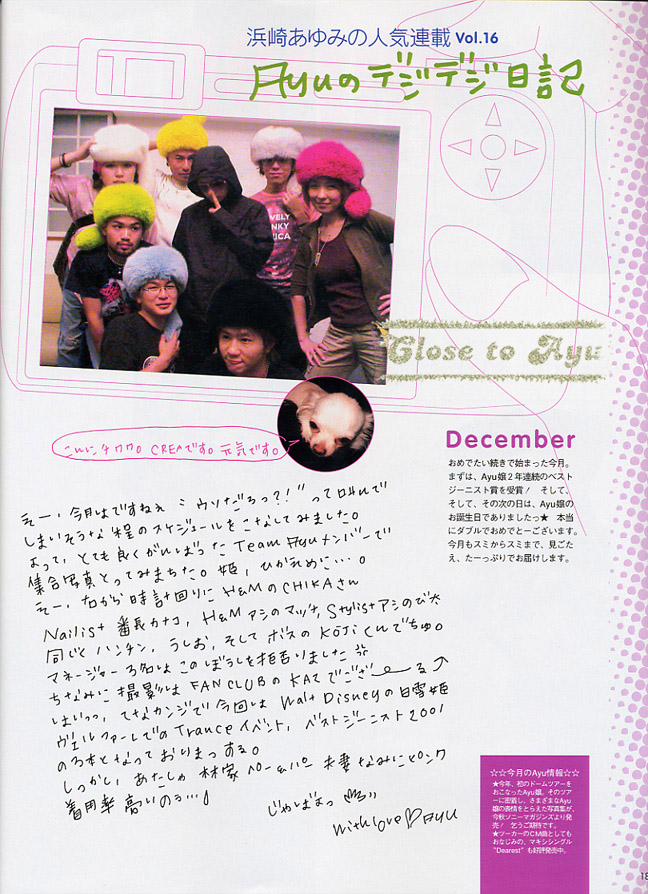 浜崎あゆみの人気連載 Vol.16
Ayuのデジデジ日記
VELY
NKY
ICA
Close to Ayu
こんにチワワ。CREAです。元気です。
December
おめでたい続きで始まった今月。
まずは、Ayu嬢2年連続のベスト
ジーニスト賞を受賞! そして、
そして、その次の日は、Ayu嬢の
お誕生日でありましたっ★ 本当
にダブルでおめでとーございます。
今月もスミからスミまで、見ごた
え、たーっぷりでお届けします。
えー、今月はですねぇ “ウソだねっ?!” って叫んで
しまいそうな程のスケジュールをこなしてみました。
よって、とても良くがんばった Team Ayuメンバーで
集合写真とってみまちた。姫、ひかえめに…。
えー、右から時計回りに H&MのCHIKAさん
Nailist 番長カナコ, H&M アシのマッチ, Stylistアシのび太
同じく ハンチン, うしお, そして ボスの KOJIくんでちゅ。
マネージャー は このぼうしを拒否りました
ちなみに 撮影は FANCLUBの KAZでござーる
はいっ, てなカンジで 今回は Walt Disneyの白雪姫
ヴェルファーレでのTranceイベント, ベストジーニスト2001
の3本となっておりまっする。
しっかし, あたしゃ 林家ペー&パー 夫妻なみにピンク
着用率 高いのぅ…」
じゃばよっ
with love♡Ayu
☆☆今月のAyu情報☆☆
★今年、初のドームツアーを
おこなったAyu嬢。そのツア
ーに密着し、さまざまなAyu
嬢の表情をとらえた写真集が、
今秋ソニーマガジンズより発
売! 乞うご期待です。
★ツーカーのCM曲としても
おなじみの、マキシシングル
“Dearest”も好評発売中。
18